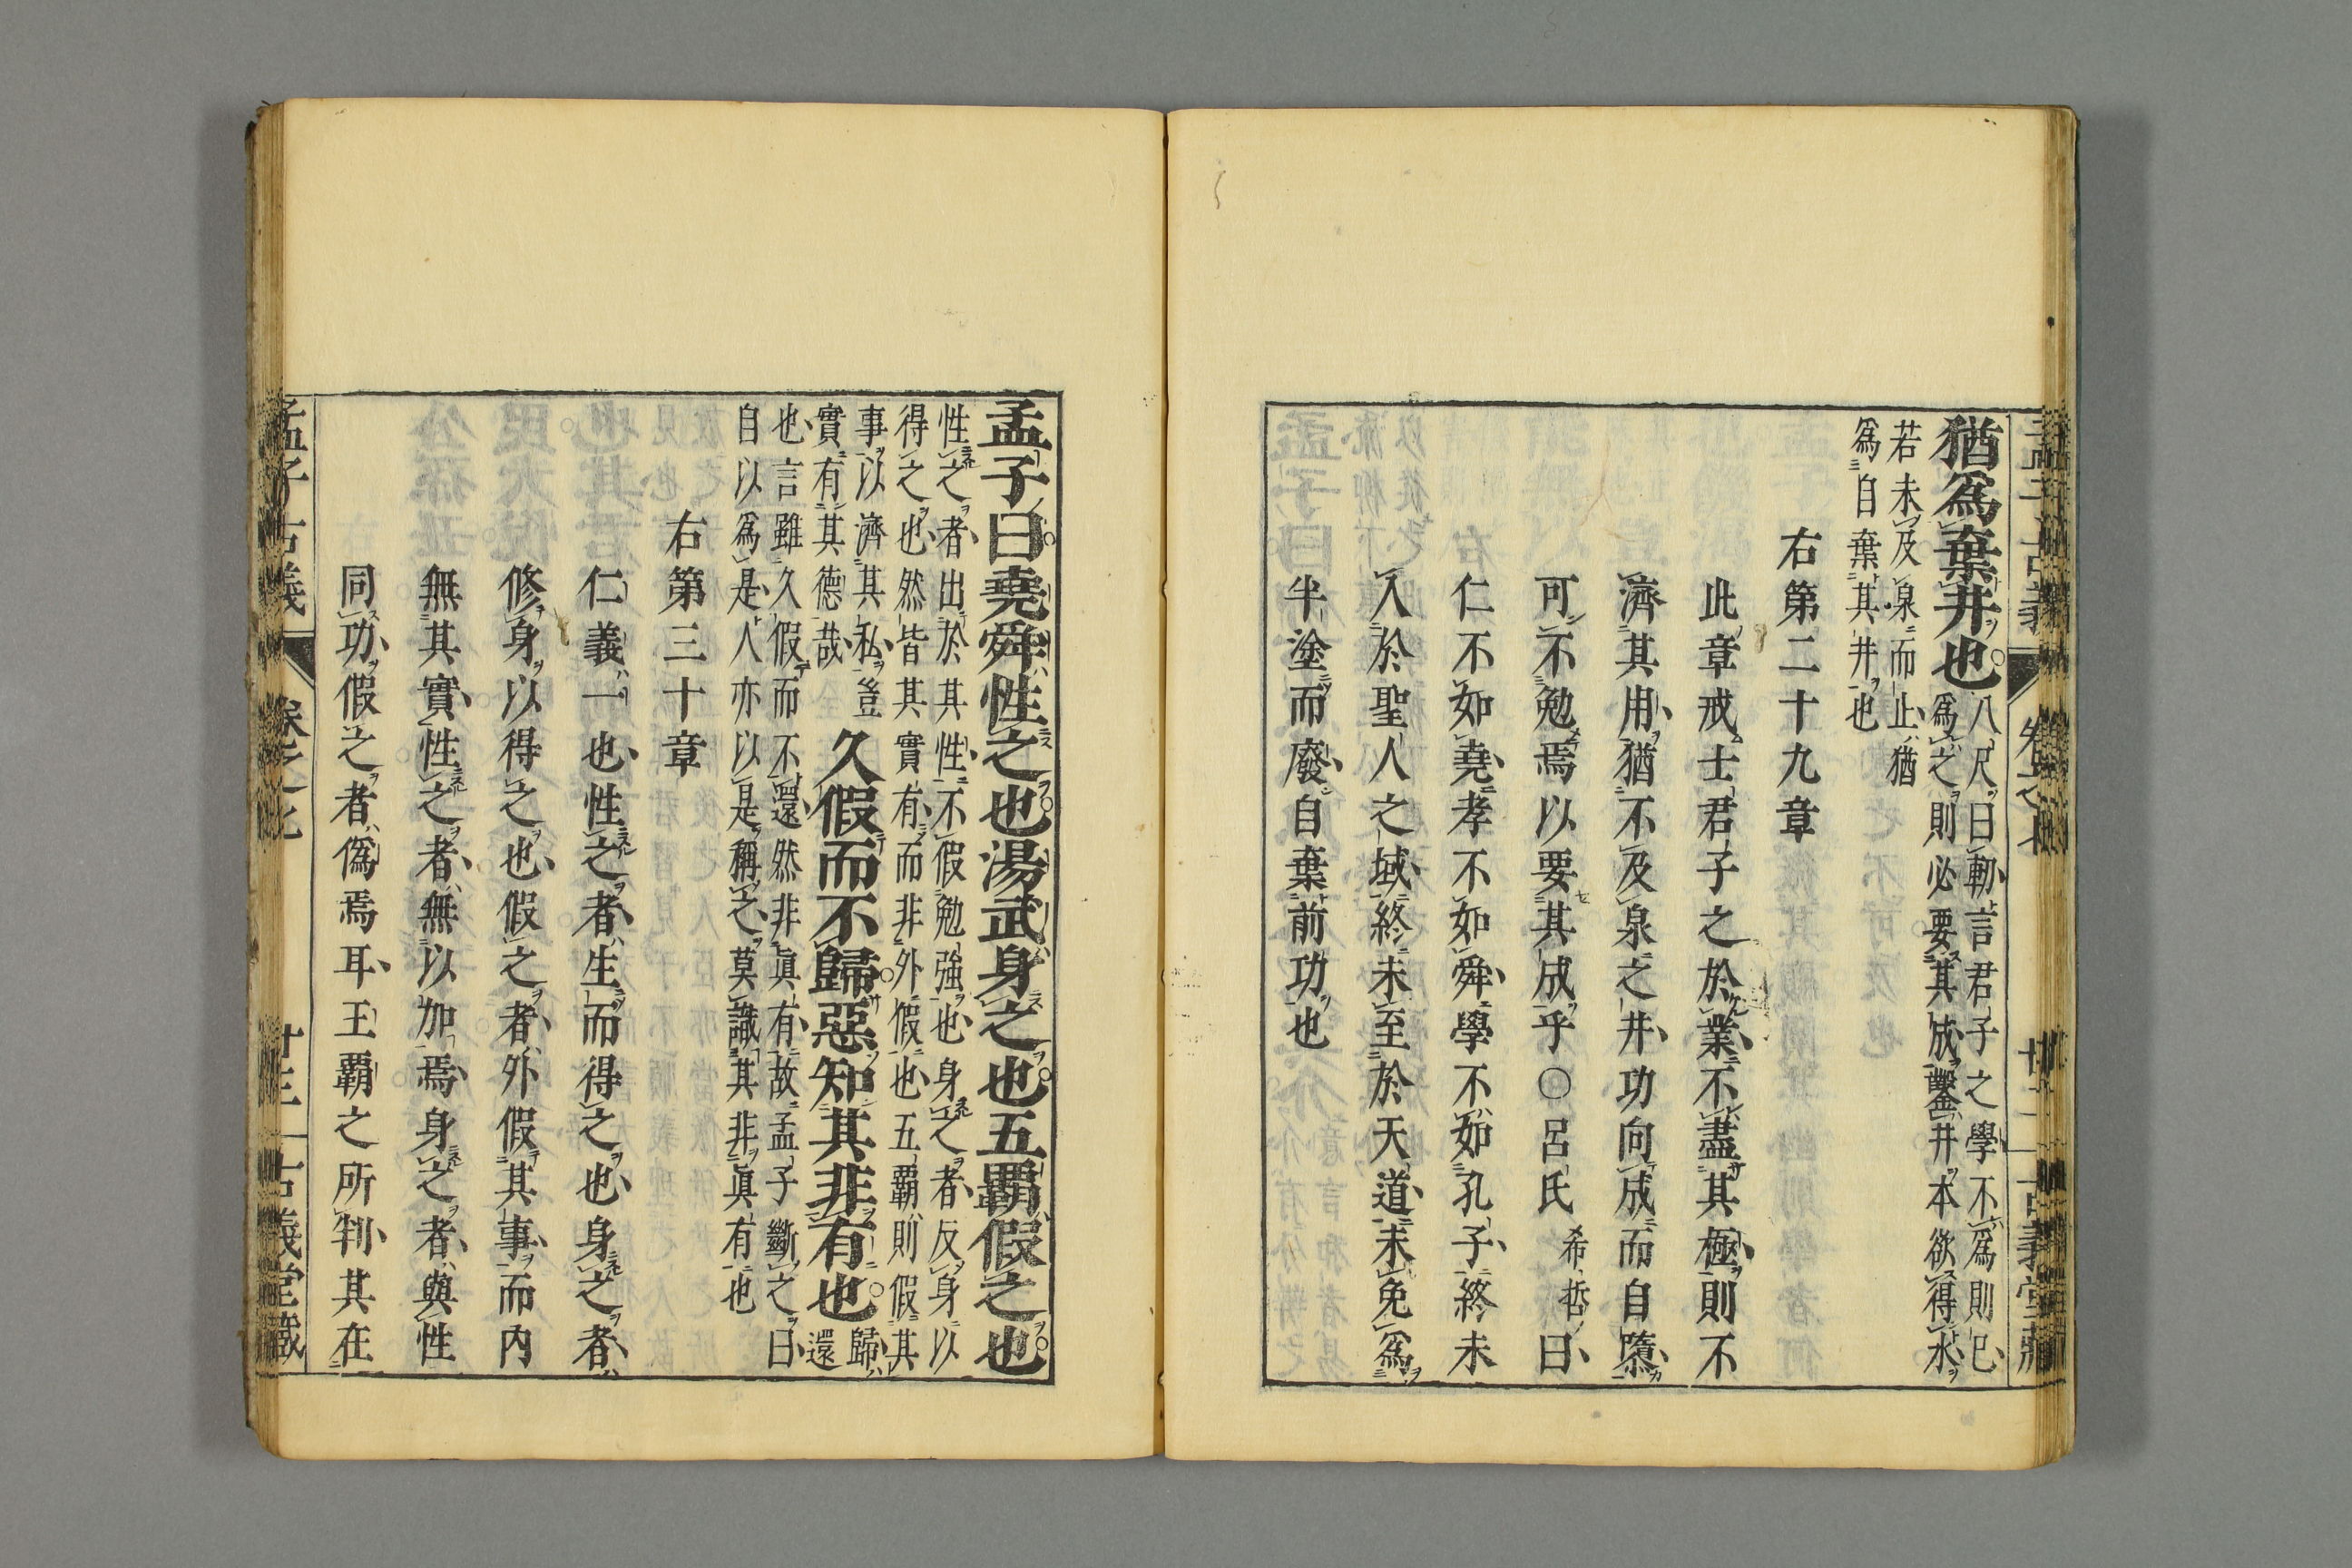 猶爲棄井也
八尺曰軔言君子之學不爲則已
爲之則必要其成鑿井本欲得水
若未及泉而止猶
爲自棄其井也
右第二十九章
此章戒士君子之於業不盡其極則不
濟其用猶不及泉之井功向成而自隳
可不勉焉以要其成乎〇呂氏希哲曰
仁不如堯孝不如舜學不如孔子終未
入於聖人之域終未至於天道未免爲
半塗而廢自棄前功也
孟子曰堯舜性之也湯武身之也五覇假之也
性之者出於其性不假勉強也身之者反身以
得之也然皆其實有而非外假也五覇則假其
事以濟其私豈
實有其德哉
久假而不歸惡知其非有也
歸還
也言雖久假而不還然非眞有故孟子斷之曰
自以爲是人亦以是稱之莫識其非眞有也
右第三十章
仁義一也性之者生而得之也身之者
修身以得之也假之者外假其事而内
無其實性之者無以加焉身之者與性
同功假之者僞焉耳王覇之所判其在
孟子古義 卷之七 古義堂藏